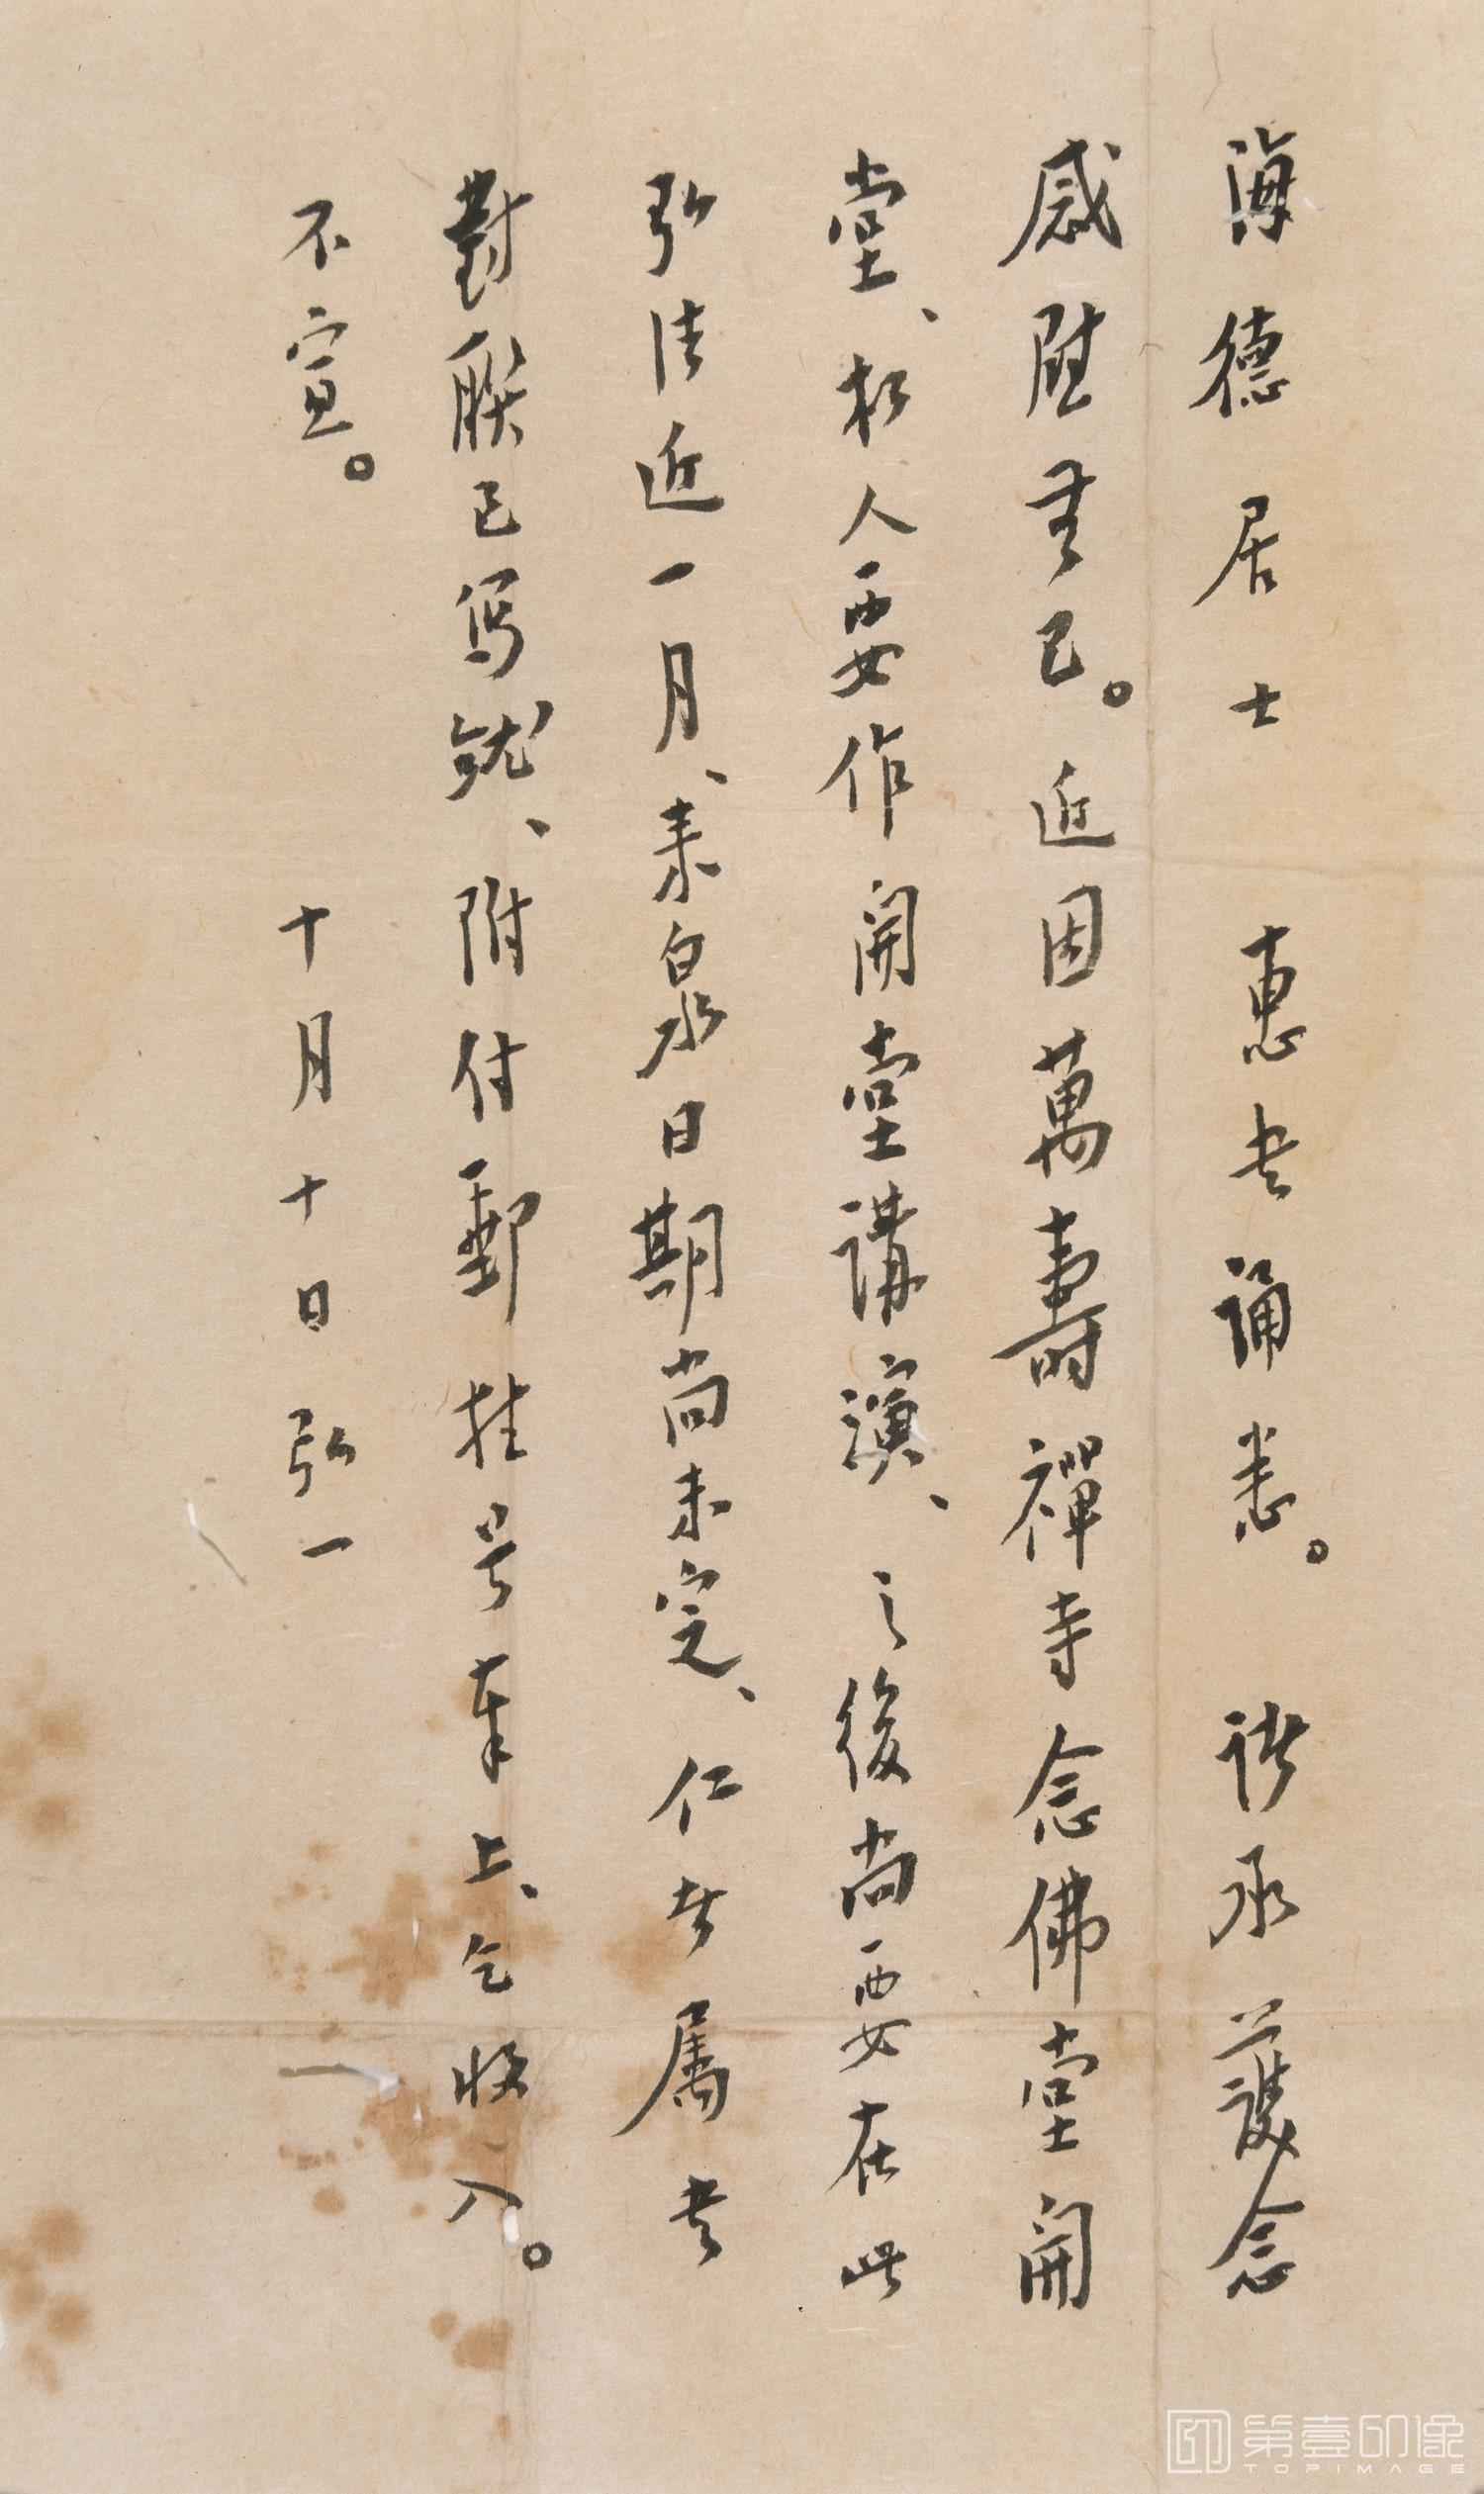 海德居士 惠书誦悉。 諸承護念
感慰無已。近因萬壽禪寺念佛堂開
堂、朽人要作開堂講演、之後尚要在此
弘法近一月、來泉日期尚未定、仁者属书
對联已写就、附付郵挂号奉上、乞收入。
不宣。
十月十日弘一
第壹印像
TOPIMAGE